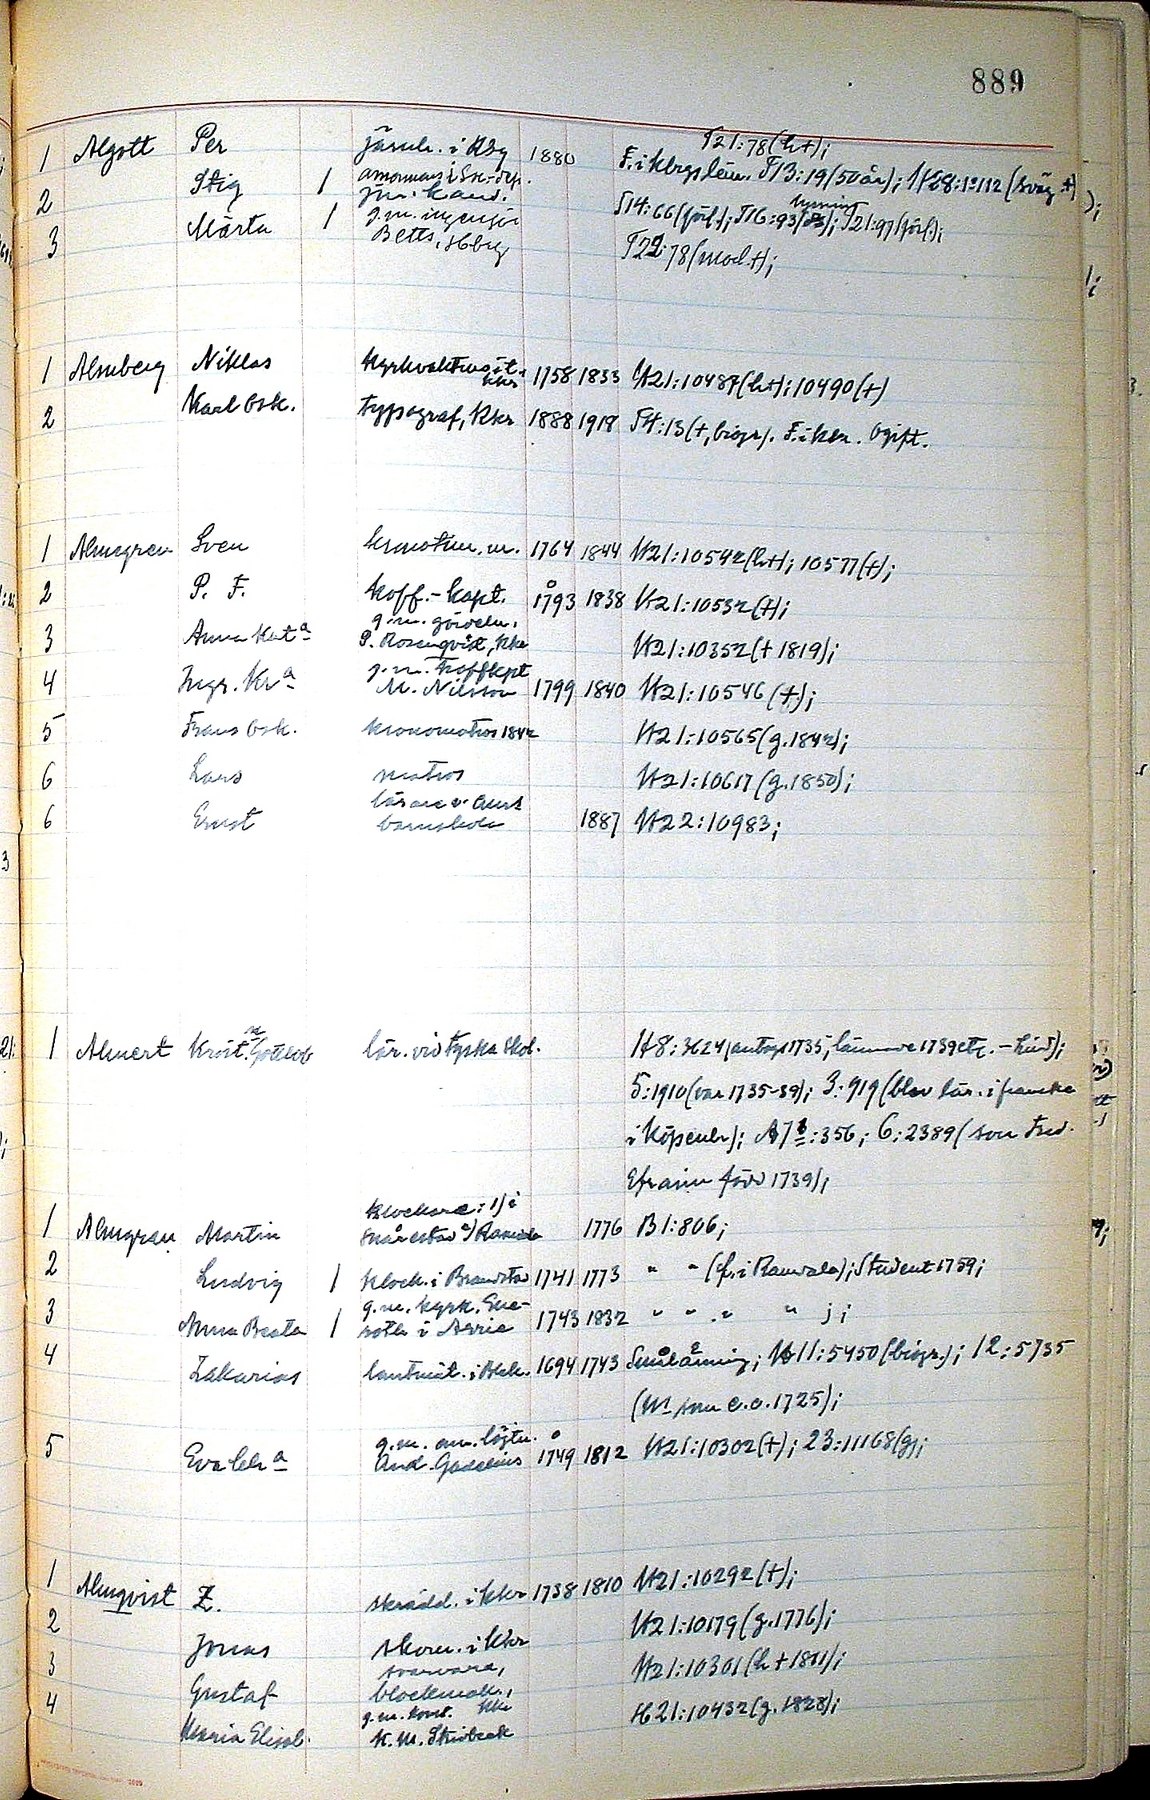 889
1 Algott Per järnh. i Kbg 1880 T21:78(h+);
F. i kbrgs län. T13:19(50 år); 1/K28:1o112 (sväg. +)
2 Stig 1 amanuens i
jur. kand. T14:66(förl.); T16:93( ); T21:97(förl.);
3 Märta 1 g.m. ingenjör
Betts, Hbrg T22:78(mod. +);
1 Almberg Niklas kkr 1758 1833 K21:10487(h+); 10490(+)
2 Karl Osk. typograf, Kkr 1888 1918 T4:13(+, biogr). F. i kkr. Ogift.
1 Almgren Sven 1764 1844 K21:10542(h+); 10577(+);
2 P. F. koff.-kapt. 1793 1838 K21:10532(+);
3 Anna Kata g.m. gördelm.
P. Rosenqvist, Kkr K21:10352(+ 1819);
4 Ingr. Kra g.m. koffkpt
M. Nilsson 1799 1840 K21:10546 (+);
5 Frans Osk. kronomatros 1842 K21:10565(g. 1842);
6 Lars matros K21:10617(g. 1850);
6 Ernst lärare v.
barnskola 1887 K22:10983;
1 Almert Krist. Gottlob lär. vid tyska skol. K8:3624(antogs 1735, lämnade 1739 etc. );
5:1910(var 1735-39); 3:919(blev lär. i franska
i Köpenh); A7 :356; 6:2389(son Fred.
Efraim född 1739);
1 Almgren Martin klockare: 1) i
2) Ramdala 1776 B1:806;
2 Ludvig 1 klock. i Bromstad 1741 1773 " " (f. i Ramdala); Student 1759;
3 Anna Beata 1 g.m. kyrk. Ene-
roth i Arrie 1743 1832 " " " " ; ;
4 Zakarias lantmät. i Blek. 1694 1743 Smålänning; K11:5450(biogr.); 12:5735
( som e.o. 1725);
5 Eva Chra g.m. am. löjtn.
And. Gadelius 1749 1812 K21:10302(+); 23:11168(g);
1 Almqvist Z. skrädd. i kkr 1738 1810 K21:10292(+);
2 Jonas skom. i kkr K21:10179(g. 1776);
3 Gustaf svarvare,
blockmak., Kkr K21:10301(h + 1811);
4 Maria Elisab. g.m. konst.
K. M. Stridbeck K21:10432(g. 1828);